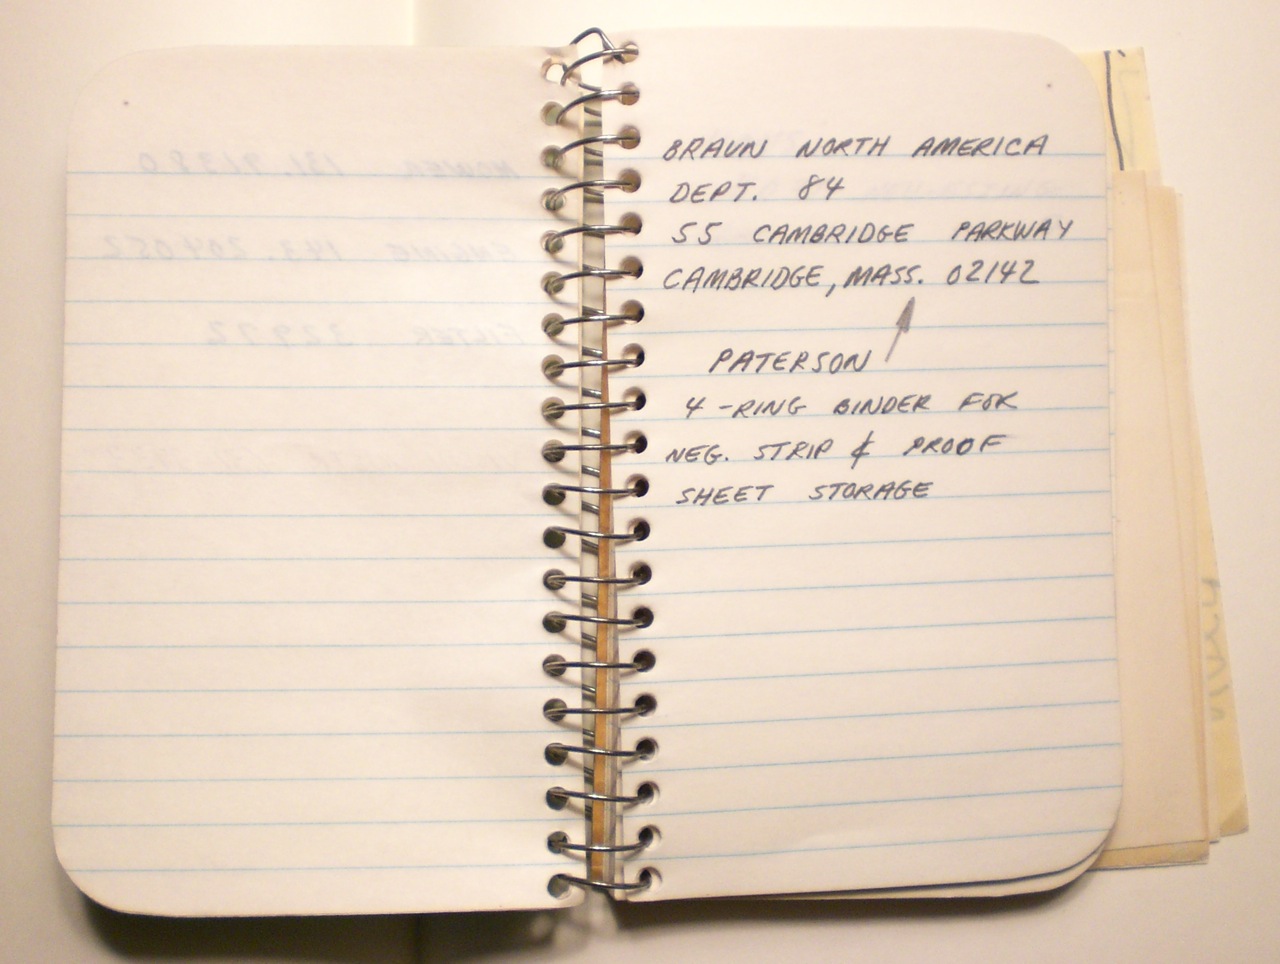 BRAUN NORTH AMERICA
DEPT. 84
55 CAMBRIDGE PARKWAY
CAMBRIDGE, MASS. 02142
PATERSON
4-RING BINDER FOR
NEG. STRIP & PROOF
SHEET STORAGE